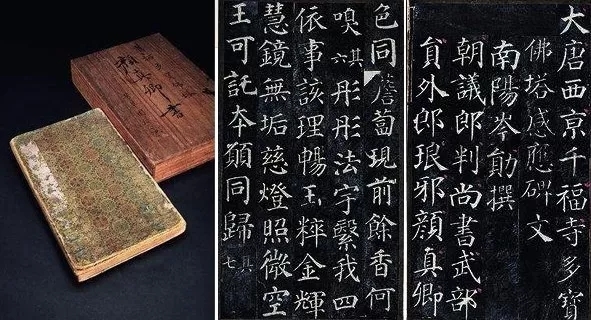 大唐西京千福寺多寶
佛塔感應碑文
南陽岑勛撰
朝議郎判尚書武部
貟外郎琅邪顏真卿
色同薝蔔現前餘香何
嗅其六彤彤法宇繫我四
依事該理暢玉粹金輝
慧鏡無垢慈燈照微空
王可託本願同歸其七
顏真卿書